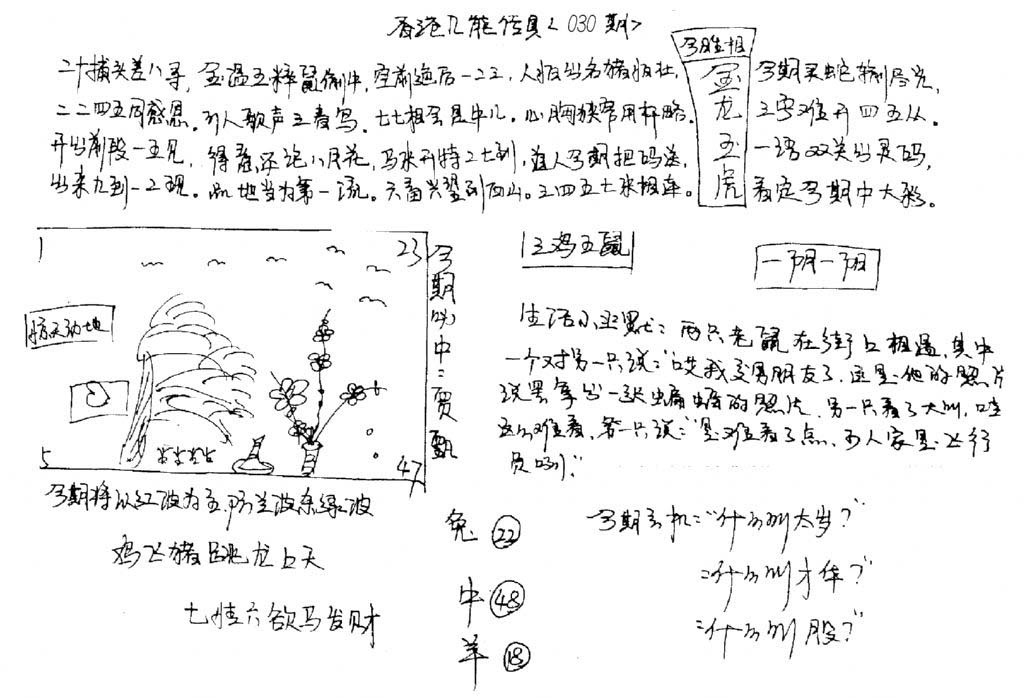 香港几能传真<030期>
今肖生相
金龙玉虎
二十摘头差八寻，金温玉粹鼠偷牛，空前绝后一二三，人猴出名猪猴壮，
二二四五同感恩。引人歌声三春写。七七相会是牛儿。心胸狭窄用杯略。
开出前段一五见，得意还说八月花，马来开特二七到，道人今期把码送，
出来九到一二现。此地当为第一流。六畜兴望到西山。三四五七来相连。
今期买蛇输尽光，
三字难开四五从。
一语双关出灵码，
看定今期中大彩。
1 23
惊天动地
5 47
今期必中：贾甄
三鸡五鼠
一阴一阳
生活小幽默：两只老鼠在街上相遇，其中
一个对另一只说："哎我交男朋友了，这是他的照片
说罢拿出一张蝙蝠的照片，另一只看了大叫，哇
这么难看，第一只说："是难看了点，可人家是飞行
员哟！"
今期将以红波为主，防兰波杀绿波
鸡飞猪跳龙上天
七情六欲马发财
兔 22
牛 48
羊 18
今期玄机："什么叫太岁？"
："什么叫才华？"
："什么叫股？"